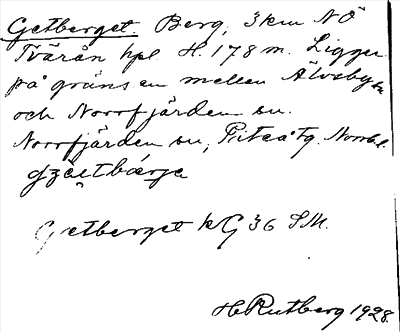 Getberget. Berg, 3 km NÖ
Tvärån hpl. H. 178 m. Ligger
på gränsen mellan Älvsbyn
och Norrfjärden sn.
Norrfjärden sn, Piteå tg. Norrb. l.
Getberget kG 36 SM.
H. Rutberg 1928.